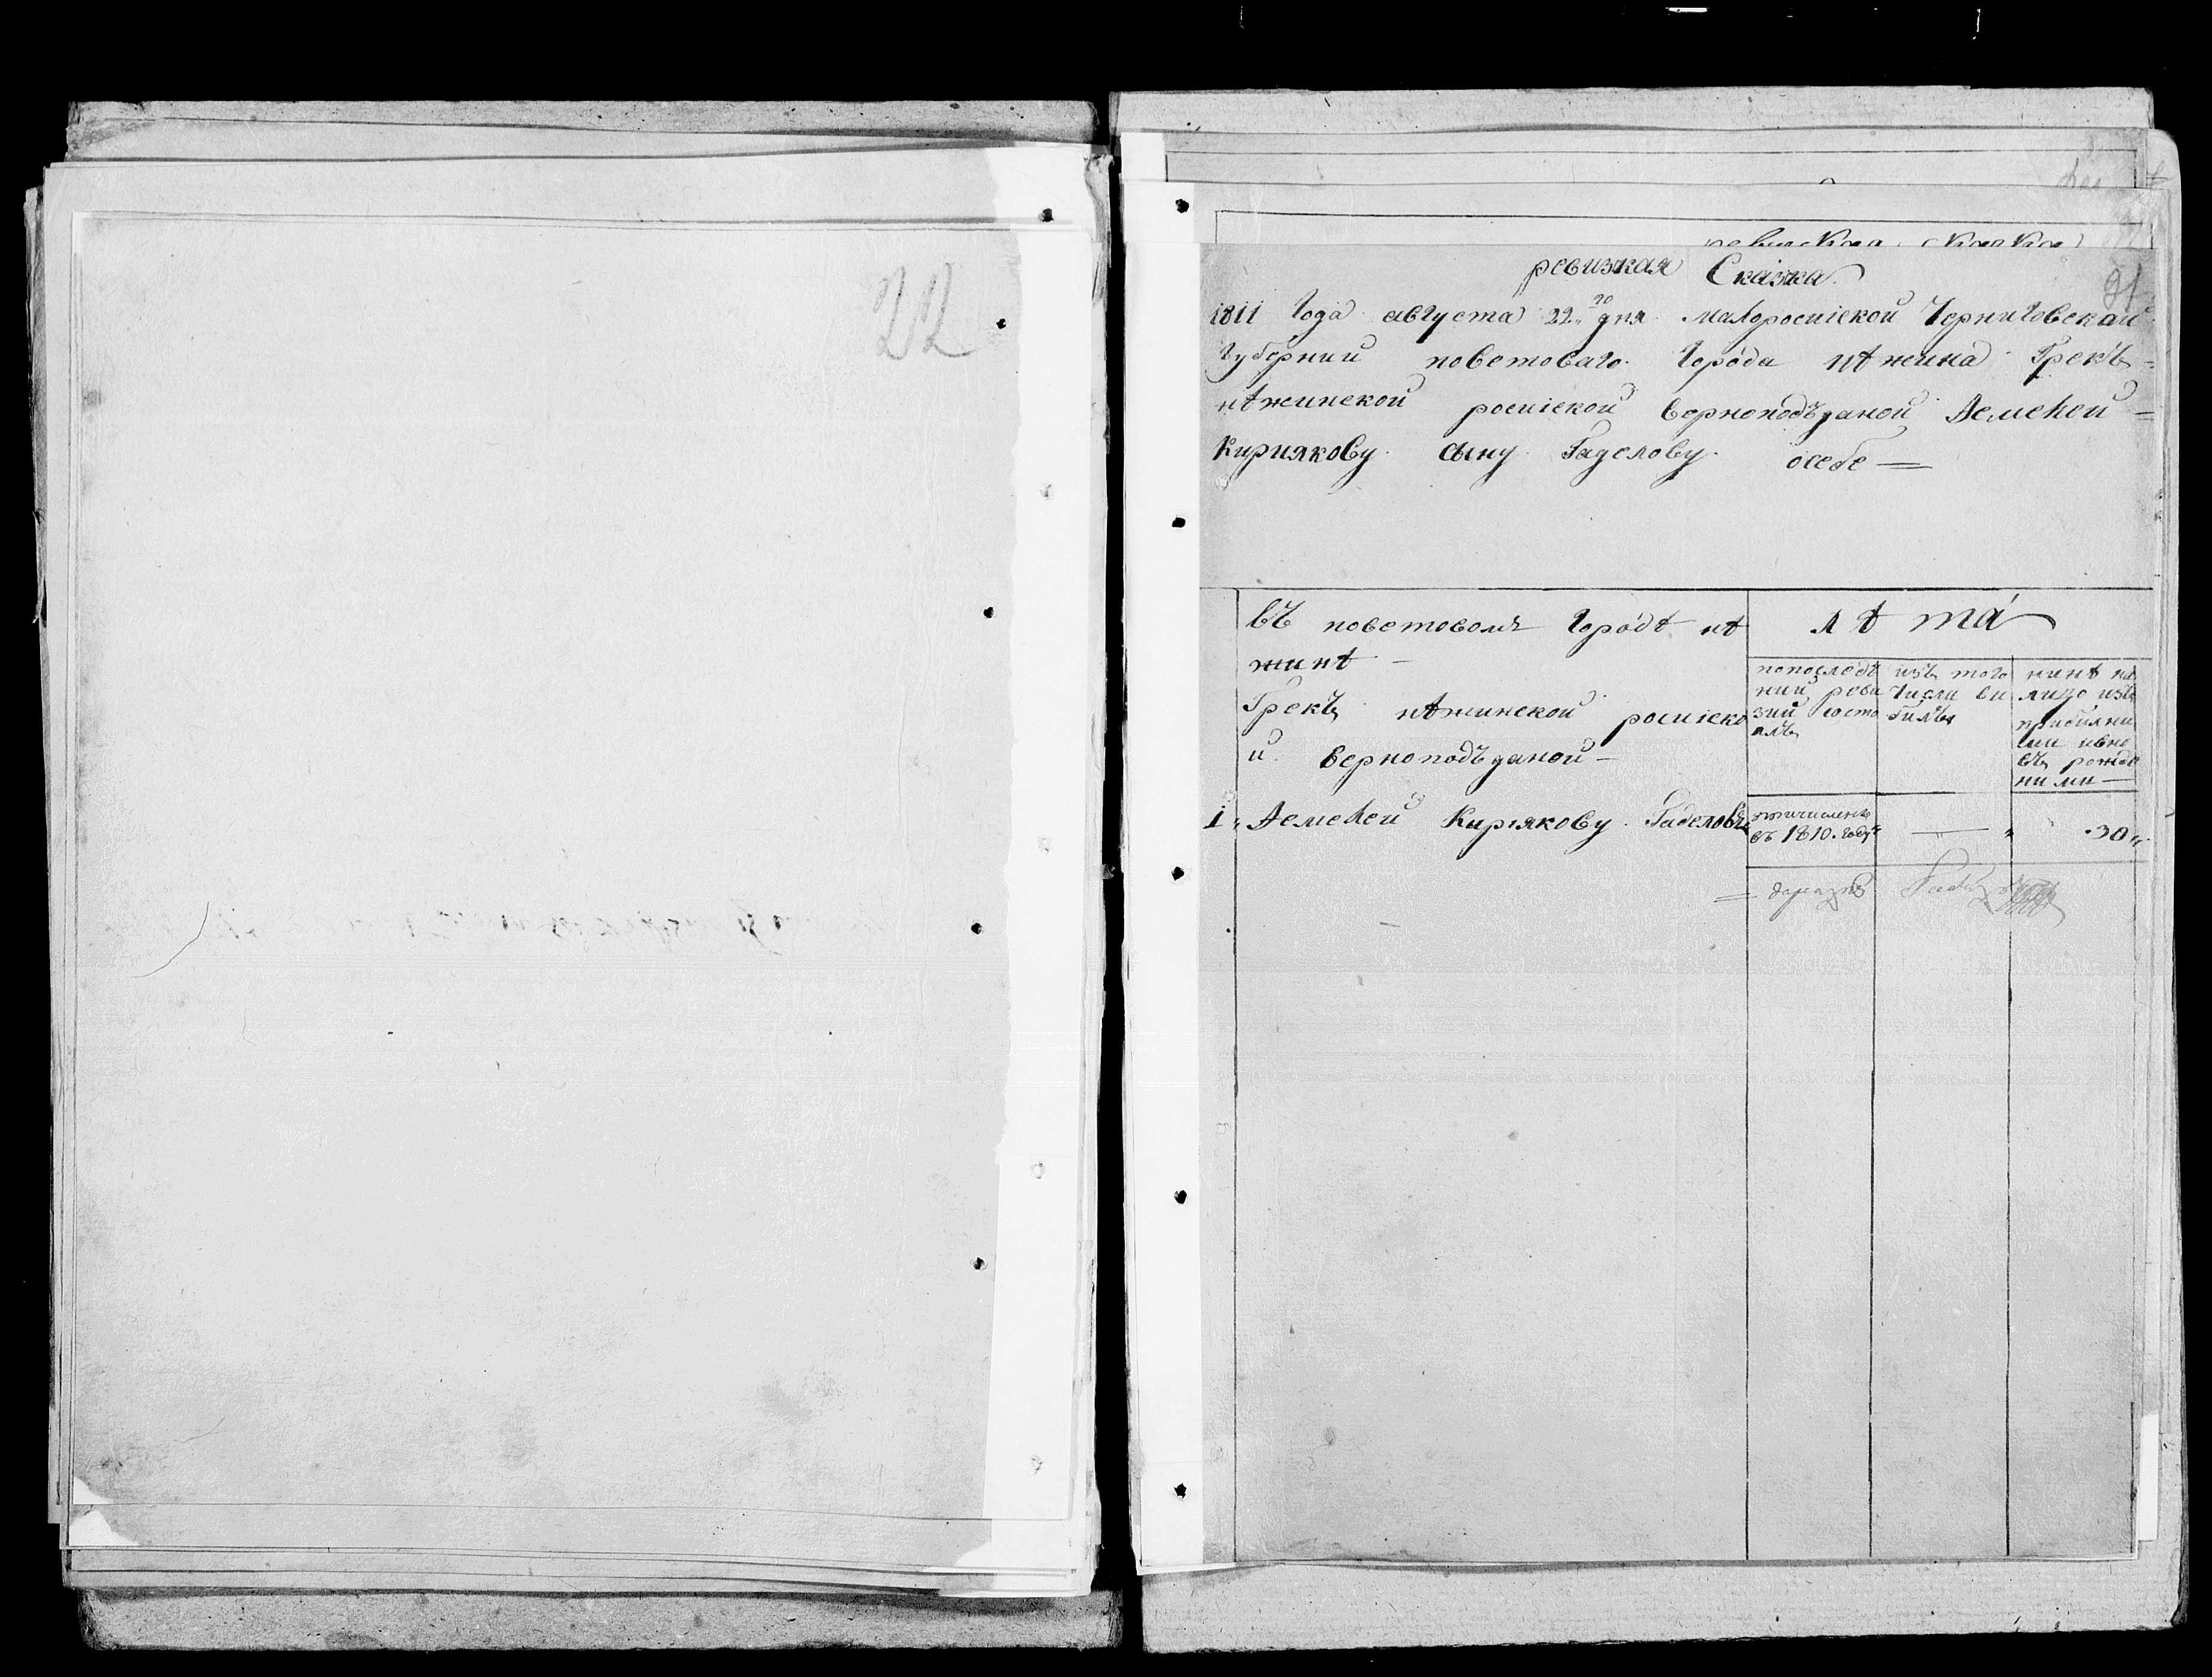 22
ревизкая Сказка
91
1811 Года августа 22го дня малоросиіской Черниговской
Губернии поветоваго Города нѣжина Грекъ
нѣжинской росиіской верноподъданой Асмекей
Кириякову сыну Гаделову осебе
въ поветовомъ Городѣ нѣ
жинѣ
Грекъ нѣжинской росиіско
й верноподъданой
лѣта
попоследъ
ней реви
зии состо
ялъ
изъ того
Числа ви
билъ
нинѣ на
лицо изъ
прибилни
ми ивно
въ рожде
ними
1 Асмекей Кириякову Гаделовъ
причисленъ
въ 1810. году
30